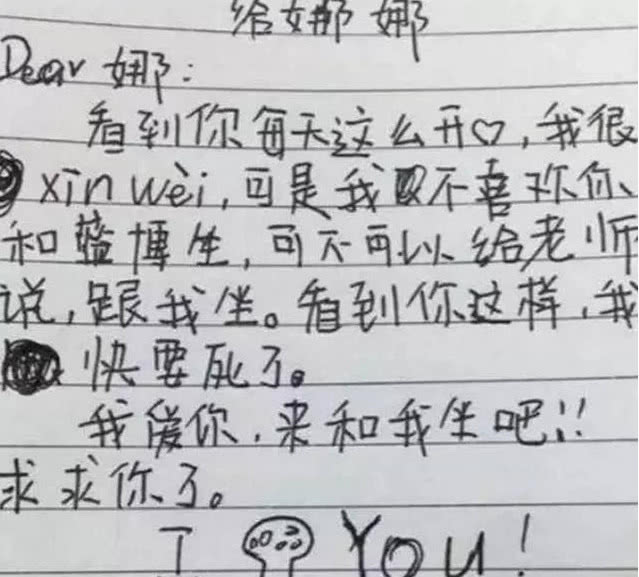 给娜娜
Dear 娜:
看到你每天这么开♡,我很
xīn wèi,可是我不喜欢你、
和蓝博生,可不可以给老师
说,跟我坐。看到你这样,我
快要死了。
我爱你,来和我坐吧!!
求求你了。
I You!